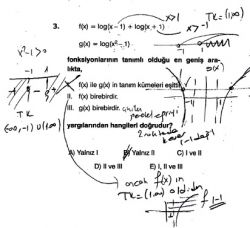 3. f(x) = log(x − 1) + log(x + 1)
x>1
x>-1
TK = (1,∞)
g(x) = log(x² − 1)
x²-1>0
fonksiyonlarının tanımlı olduğu en geniş ara-
lıkta,
g(x)
I. f(x) ile g(x) in tanım kümeleri eşittir.
II. f(x) birebirdir.
III. g(x) birebirdir.
çünkü
TK
(-∞,-1) ∪ (1,∞)
yargılarından hangileri doğrudur?
2 noktada
A) Yalnız I
B) Yalnız II
C) I ve II
D) II ve III
E) I, II ve III
ancak f(x) in
TK=(1,∞) olduğundan
f 1-1